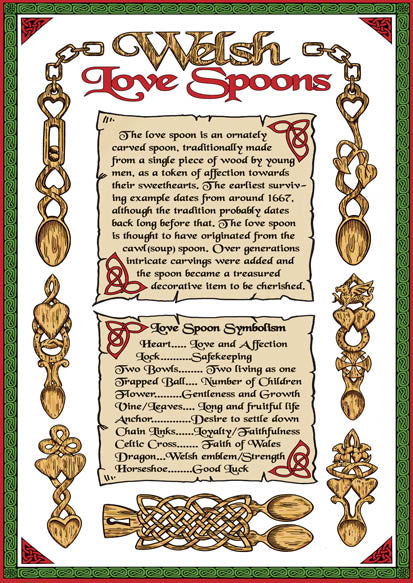 Welsh
Love Spoons
The love spoon is an ornately
carved spoon, traditionally made
from a single piece of wood by young
men, as a token of affection towards
their sweethearts. The earliest surviv-
ing example dates from around 1667,
although the tradition probably dates
back long before that. The love spoon
is thought to have originated from the
cawl(soup) spoon. Over generations
intricate carvings were added and
the spoon became a treasured
decorative item to be cherished.
Love Spoon Symbolism
Heart..... Love and Affection
Lock...........Safekeeping
Two Bowls........ Two living as one
Trapped Ball.... Number of Children
Flower..........Gentleness and Growth
Vine/Leaves.... Long and fruitful life
Anchor..............Desire to settle down
Chain Links......Loyalty/Faithfulness
Celtic Cross........ Faith of Wales
Dragon...Welsh emblem/Strength
Horseshoe.......Good Luck